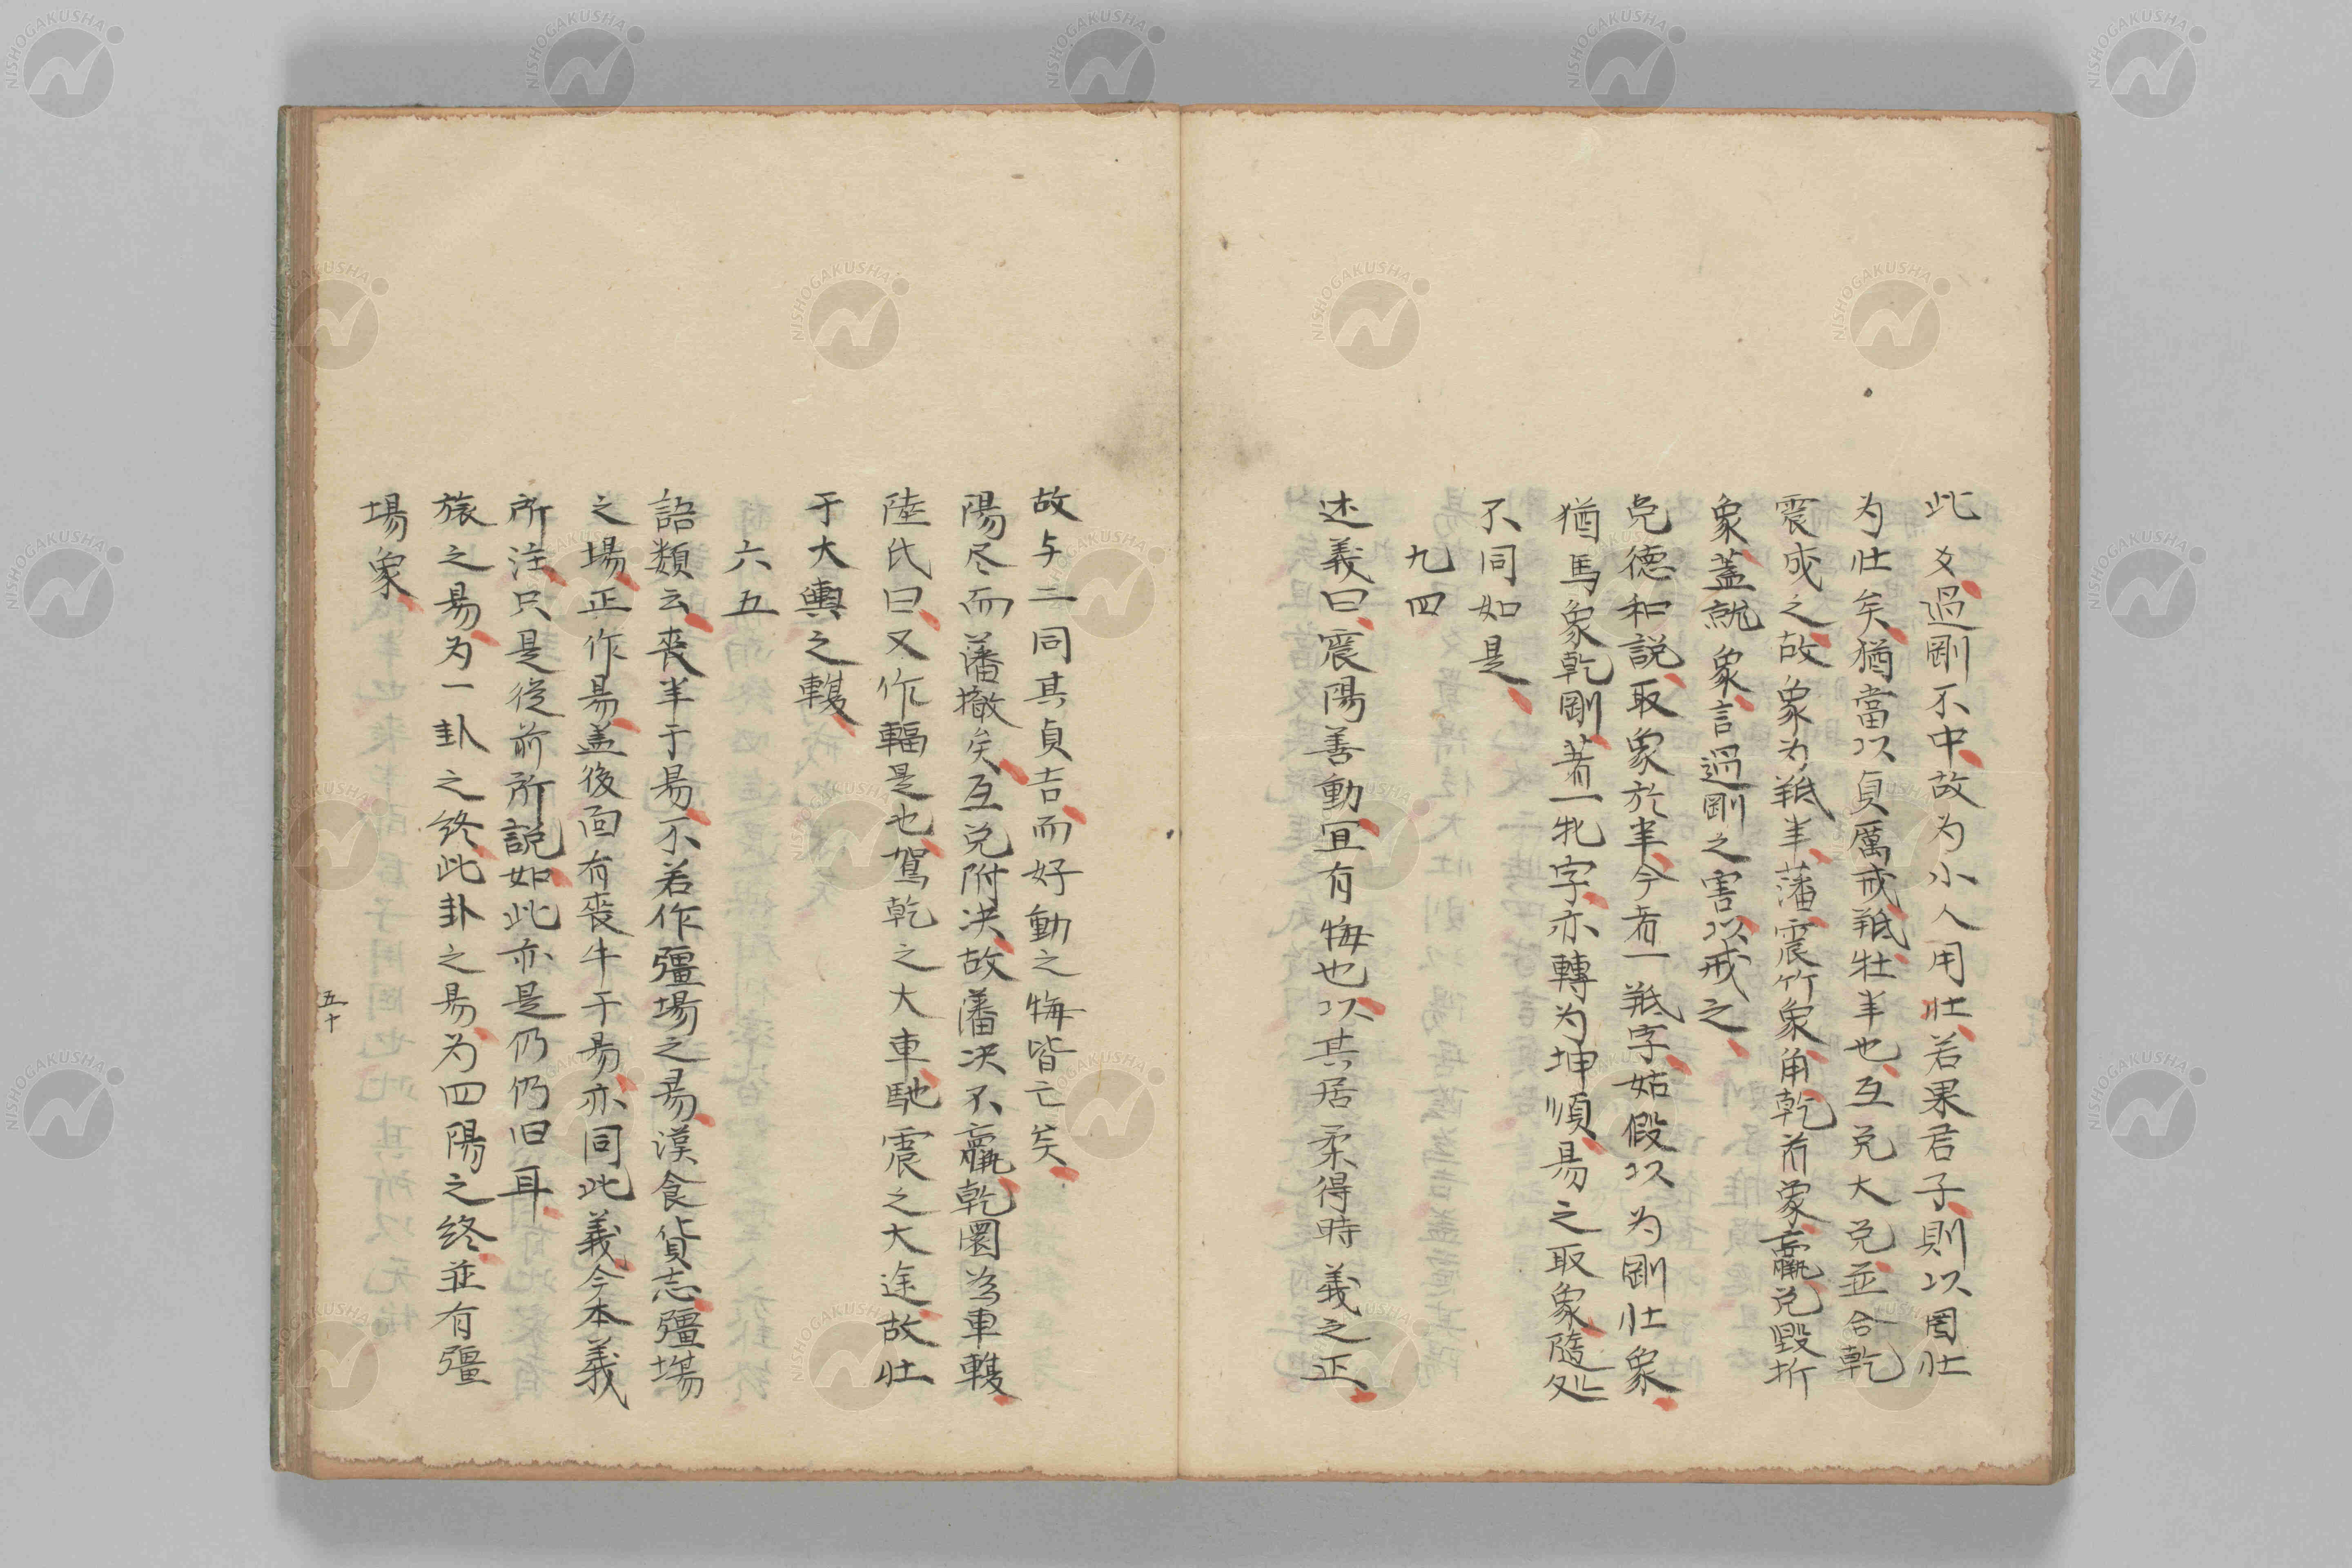 此爻過剛不中故为小人用壮若果君子則以罔壮
为壮矣猶當以貞厲戒羝牡羊也互兑大兑並合乾
震成之故象为羝羊藩震竹象角乾首象羸兑毀折
象蓋就象言過剛之害以戒之
兑德和説取象於羊今着一羝字姑假以为剛壮象
猶馬象乾剛著一牝字亦轉为坤順易之取象隨処
不同如是
九四
述義曰震陽善動宜有悔也以其居柔得時義之正
故与二同其貞吉而好動之悔皆亡矣
陽尽而藩撤矣互兑附决故藩决不羸乾圜為車輹
陸氏曰又作輻是也駕乾之大車馳震之大途故壮
于大輿之輹
六五
語類云喪羊于易不若作疆場之易漢食貨志疆場
之場正作易盖後面有喪牛于易亦同此義今本義
所注只是從前所説如此亦是仍仍旧耳
旅之易为一卦之終此卦之易为四陽之終並有疆
場象
五十
NISHOGAKUSHA